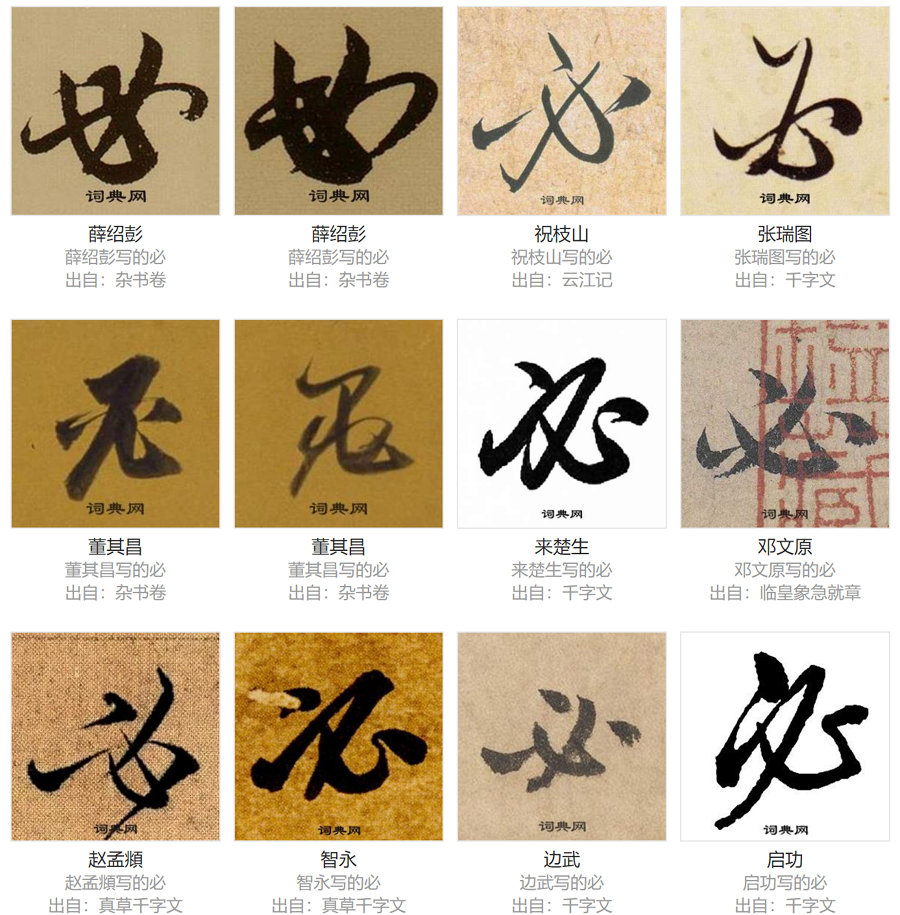 必 必 必 必
词典网 词典网 词典网 词典网
薛绍彭 薛绍彭 祝枝山 张瑞图
薛绍彭写的必 薛绍彭写的必 祝枝山写的必 张瑞图写的必
出自：杂书卷 出自：杂书卷 出自：云江记 出自：千字文
必 必 必 必
词典网 词典网 词典网 词典网
董其昌 董其昌 来楚生 邓文原
董其昌写的必 董其昌写的必 来楚生写的必 邓文原写的必
出自：杂书卷 出自：杂书卷 出自：千字文 出自：临皇象急就章
必 必 必 必
词典网 词典网 词典网 词典网
赵孟頫 智永 边武 启功
赵孟頫写的必 智永写的必 边武写的必 启功写的必
出自：真草千字文 出自：真草千字文 出自：千字文 出自：千字文